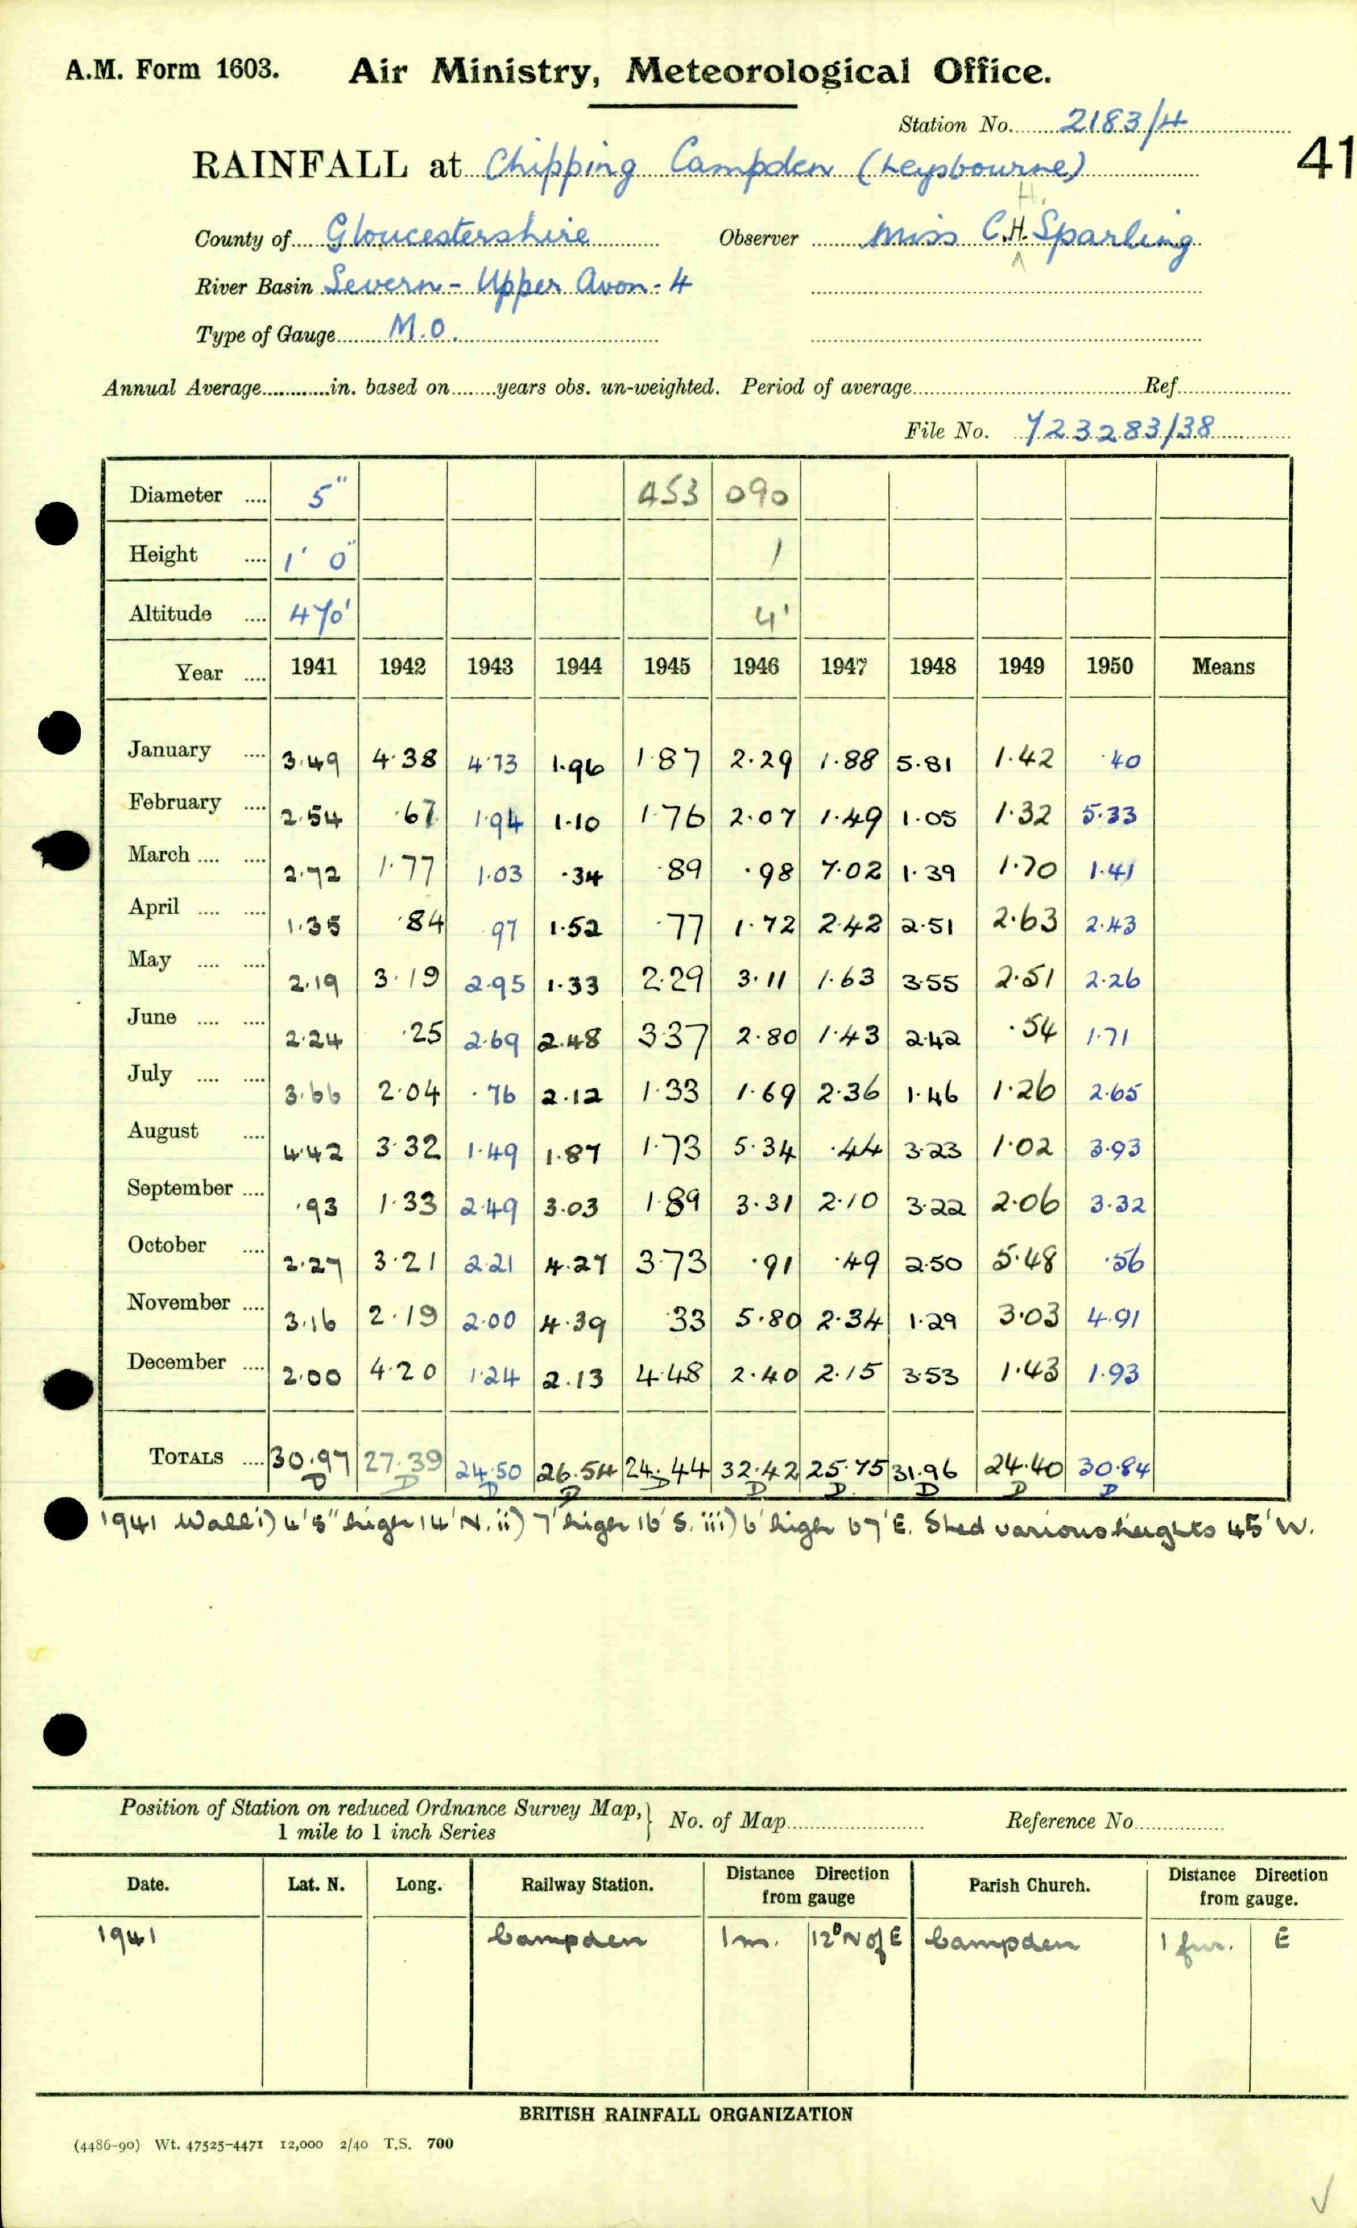 A.M. Form 1603. Air Ministry, Meteorological Office.
Station No. 2183/4
41
RAINFALL at Chipping Campden (Leysbourne)
County of Gloucestershire Observer Miss C.H. Sparling
River Basin Severn - Upper Avon - 4
Type of Gauge M.O.
Annual Average in. based on years obs. un-weighted. Period of average Ref
File No. 723283/38
Diameter 5" 453 090
Height 1' 0" 1
Altitude 470' 4'
Year 1941 1942 1943 1944 1945 1946 1947 1948 1949 1950 Means
January 3.49 4.38 4.73 1.96 1.87 2.29 1.88 5.81 1.42 .40
February 2.54 .67 1.94 1.10 1.76 2.07 1.49 1.05 1.32 5.33
March 2.72 1.77 1.03 .34 .89 .98 7.02 1.39 1.70 1.41
April 1.35 .84 .97 1.52 .77 1.72 2.42 2.51 2.63 2.43
May 2.19 3.19 2.95 1.33 2.29 3.11 1.63 3.55 2.51 2.26
June 2.24 .25 2.69 2.48 3.37 2.80 1.43 2.42 .54 1.71
July 3.66 2.04 .76 2.12 1.33 1.69 2.36 1.46 1.26 2.65
August 4.42 3.32 1.49 1.87 1.73 5.34 .44 3.23 1.02 3.93
September .93 1.33 2.49 3.03 1.89 3.31 2.10 3.22 2.06 3.32
October 2.27 3.21 2.21 4.27 3.73 .91 .49 2.50 5.48 .56
November 3.16 2.19 2.00 4.39 .33 5.80 2.34 1.29 3.03 4.91
December 2.00 4.20 1.24 2.13 4.48 2.40 2.15 3.53 1.43 1.93
TOTALS 30.97 27.39 24.50 26.54 24.44 32.42 25.75 31.96 24.40 30.84
D D D D D D D D D D
1941 Wall i) 4'8" high 14' N. ii) 7' high 16' S. iii) 6' high 67' E. Shed various heights 45' W.
Position of Station on reduced Ordnance Survey Map, 1 mile to 1 inch Series } No. of Map Reference No
Date. Lat. N. Long. Railway Station. Distance Direction from gauge Parish Church. Distance Direction from gauge.
1941 Campden 1m. 12° N of E Campden 1 fur. E
BRITISH RAINFALL ORGANIZATION
(4486-90) Wt. 47525-4471 12,000 2/40 T.S. 700